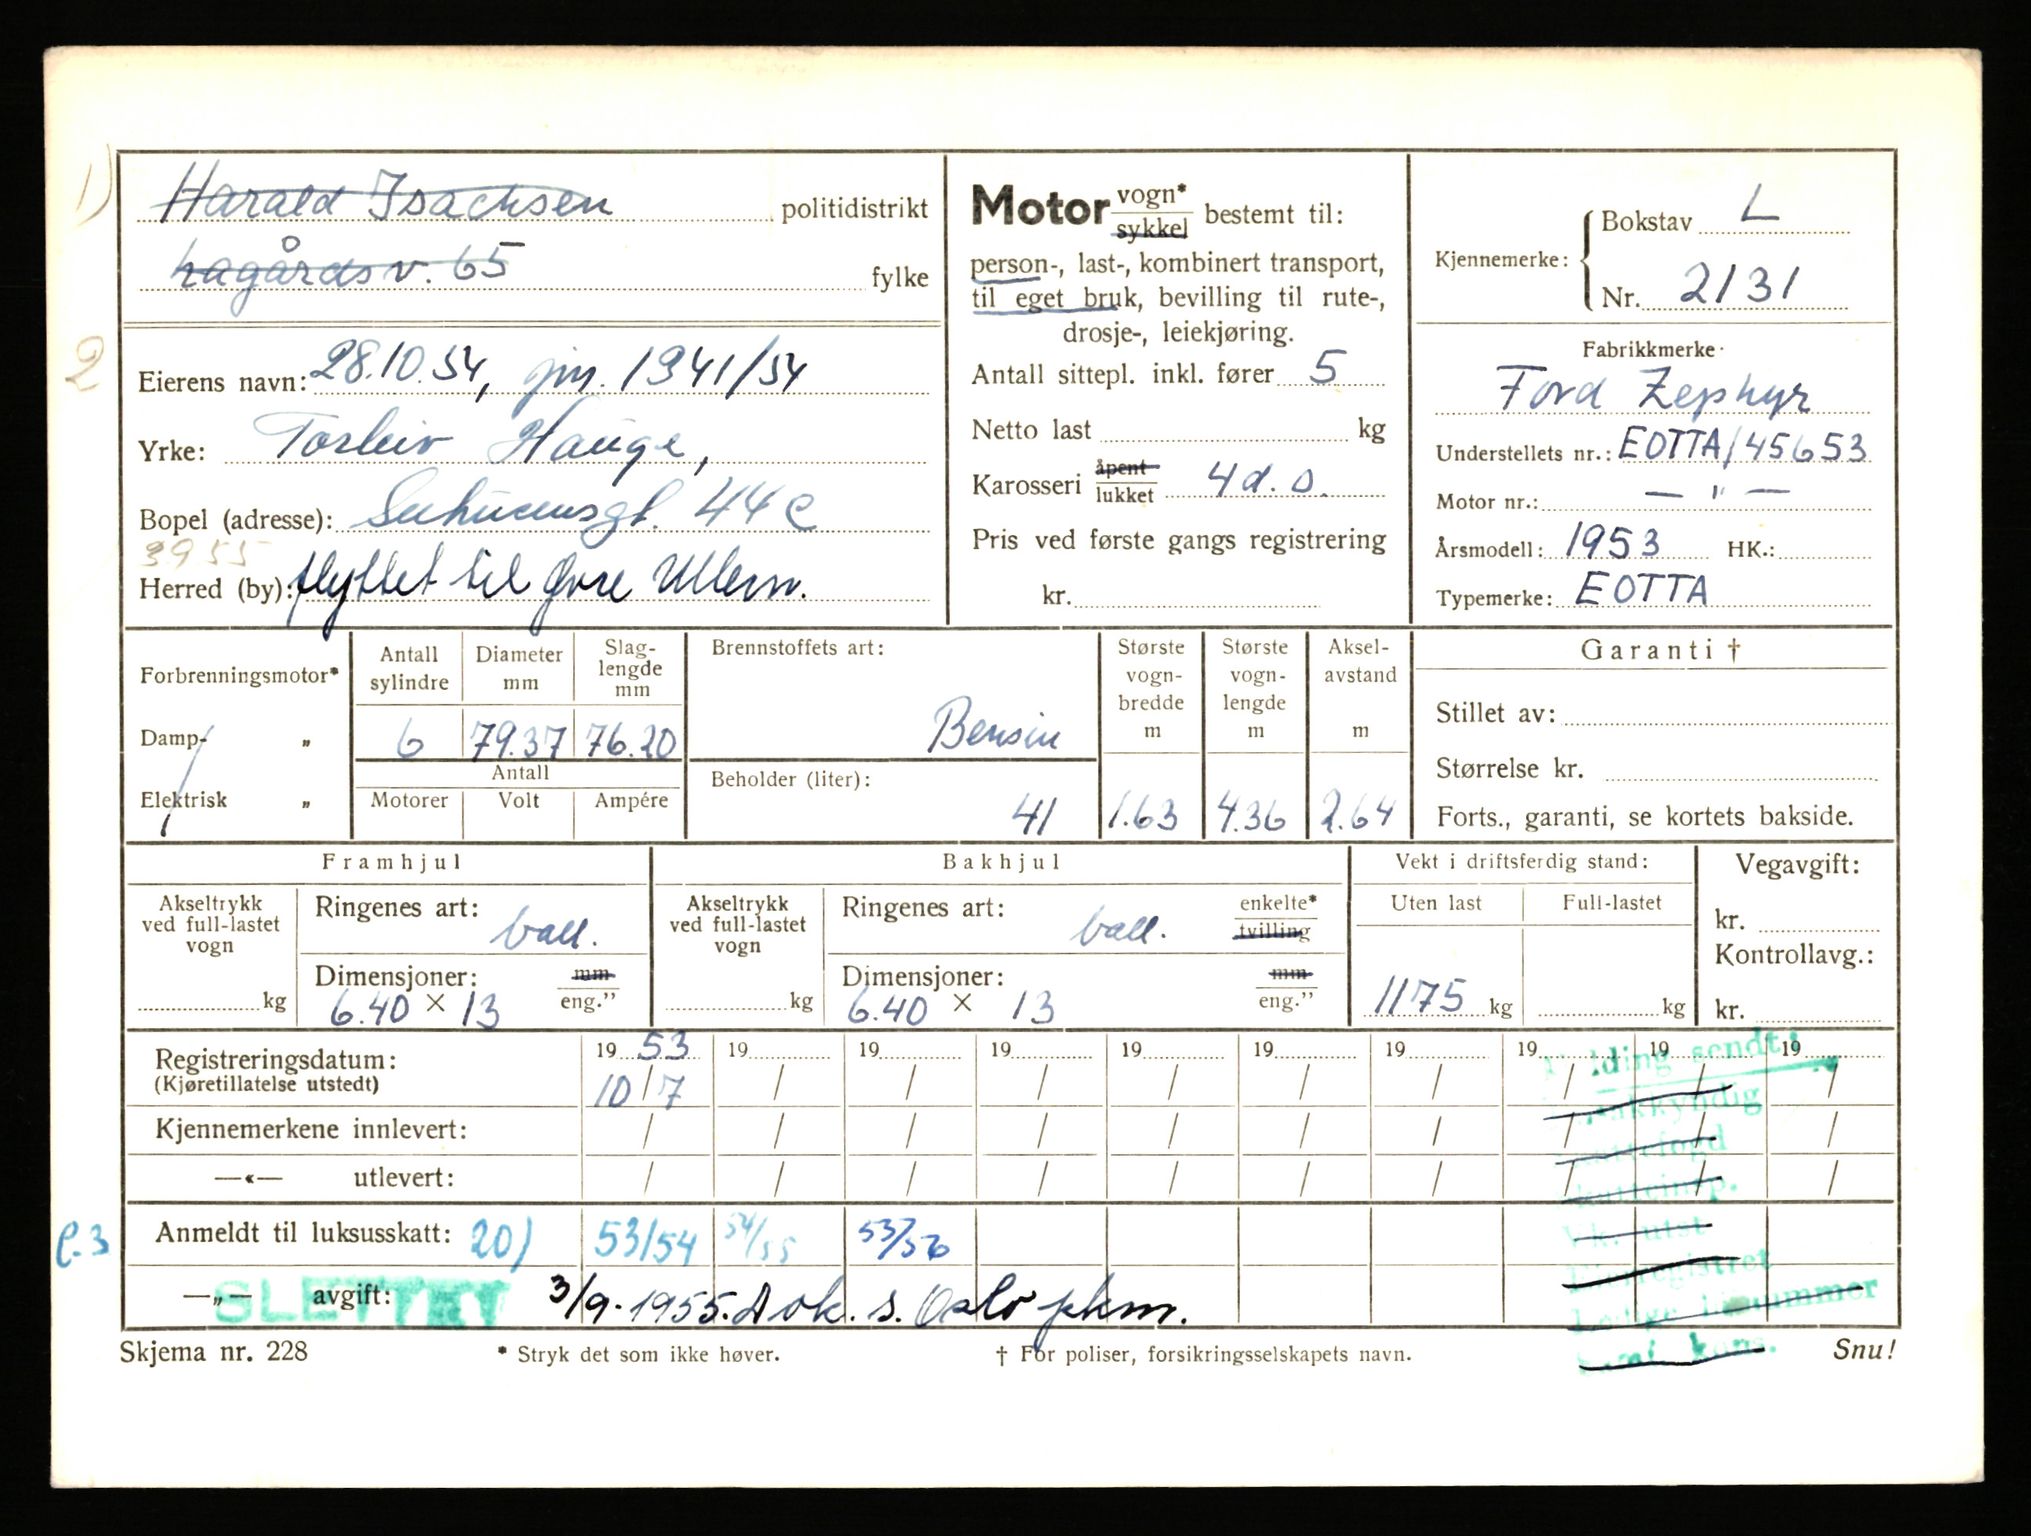 1)
Harald Isachsen politidistrikt
Lagårdsv. 65 fylke
2
Eierens navn: 28.10.54, jnr. 1941/54
Yrke: Torleiv Hauge,
Bopel (adresse): Suhmsgt. 44 c
3955
Herred (by): flyttet til Øvre Ullern.
Motor vogn* sykkel bestemt til:
person-, last-, kombinert transport,
til eget bruk, bevilling til rute-,
drosje-, leiekjøring.
Antall sittepl. inkl. fører 5
Netto last kg
Karosseri åpent lukket 4 d. s.
Pris ved første gangs registrering
kr.
Kjennemerke: Bokstav L
Nr. 2131
Fabrikkmerke
Ford Zephyr
Understellets nr.: EOTTA/45653
Motor nr.: — " —
Årsmodell: 1953 HK.:
Typemerke: EOTTA
Forbrenningsmotor*
Damp- „
Elektrisk „
Antall sylindre 6
Diameter mm 79.37
Slag-lengde mm 76.20
Antall
Motorer Volt Ampére
Brennstoffets art:
Bensin
Beholder (liter):
41
Største vogn-bredde m 1.63
Største vogn-lengde m 4.36
Aksel-avstand m 2.64
Garanti †
Stillet av:
Størrelse kr.
Forts., garanti, se kortets bakside.
Framhjul
Akseltrykk ved full-lastet vogn
kg
Ringenes art: ball.
Dimensjoner: mm eng.”
6.40 × 13
Bakhjul
Akseltrykk ved full-lastet vogn
kg
Ringenes art: ball. enkelte* tvilling
Dimensjoner: mm eng.”
6.40 × 13
Vekt i driftsferdig stand:
Uten last Full-lastet
1175 kg kg
Vegavgift:
kr.
Kontrollavg.:
kr.
Registreringsdatum: 19 53 19 19 19 19 19 19 19 19 19
(Kjøretillatelse utstedt) 10/7 / / / / / / / / /
Kjennemerkene innlevert: / / / / / / / / / /
—«— utlevert: / / / / / / / / / /
sendt:
C.3
Anmeldt til luksusskatt: 20) 53/54 54/55 53/56
—„— avgift: SLETTET 3/9.1955. Dok. s. Oslo pkm.
Skjema nr. 228
* Stryk det som ikke høver.
† For poliser, forsikringsselskapets navn.
Snu!